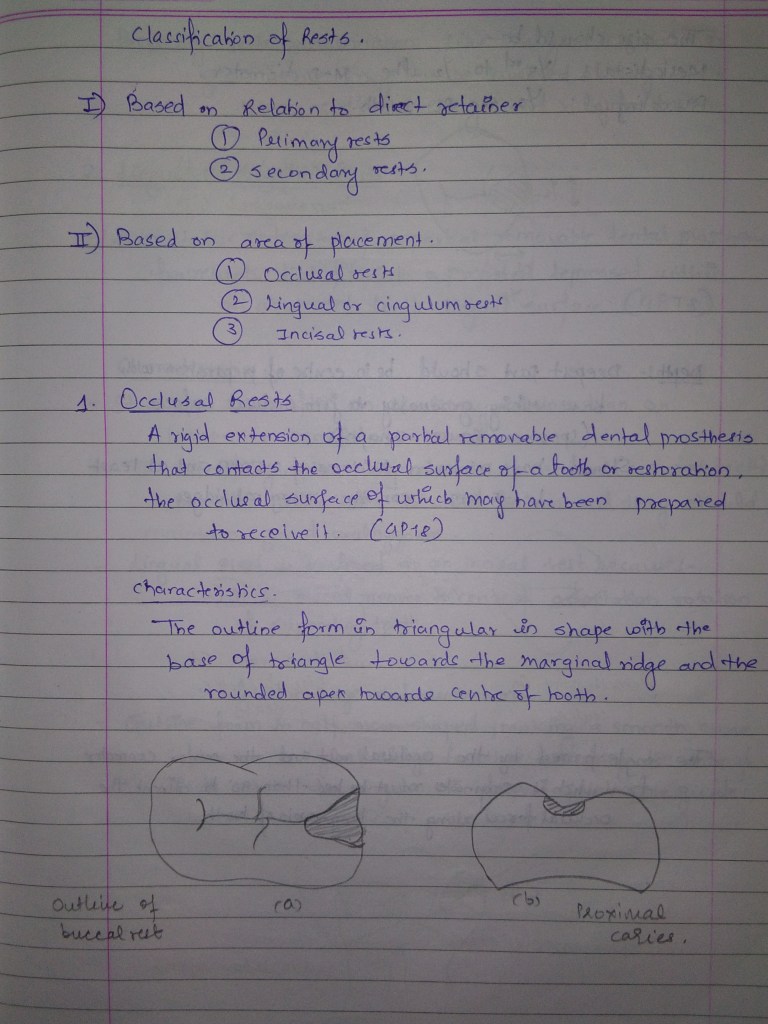 Classification of Rests.
I) Based on Relation to direct retainer
① Primary rests
② Secondary rests.
II) Based on area of placement.
① Occlusal rests
② Lingual or cingulum rests
③ Incisal rests.
1. Occlusal Rests
A rigid extension of a partial removable dental prosthesis
that contacts the occlusal surface of a tooth or restoration,
the occlusal surface of which may have been prepared
to receive it. (GPT8)
Characteristics.
The outline form in triangular in shape with the
base of triangle towards the marginal ridge and the
rounded apex towards centre of tooth.
(a)
(b)
Outline of
buccal rest
Proximal
caries.